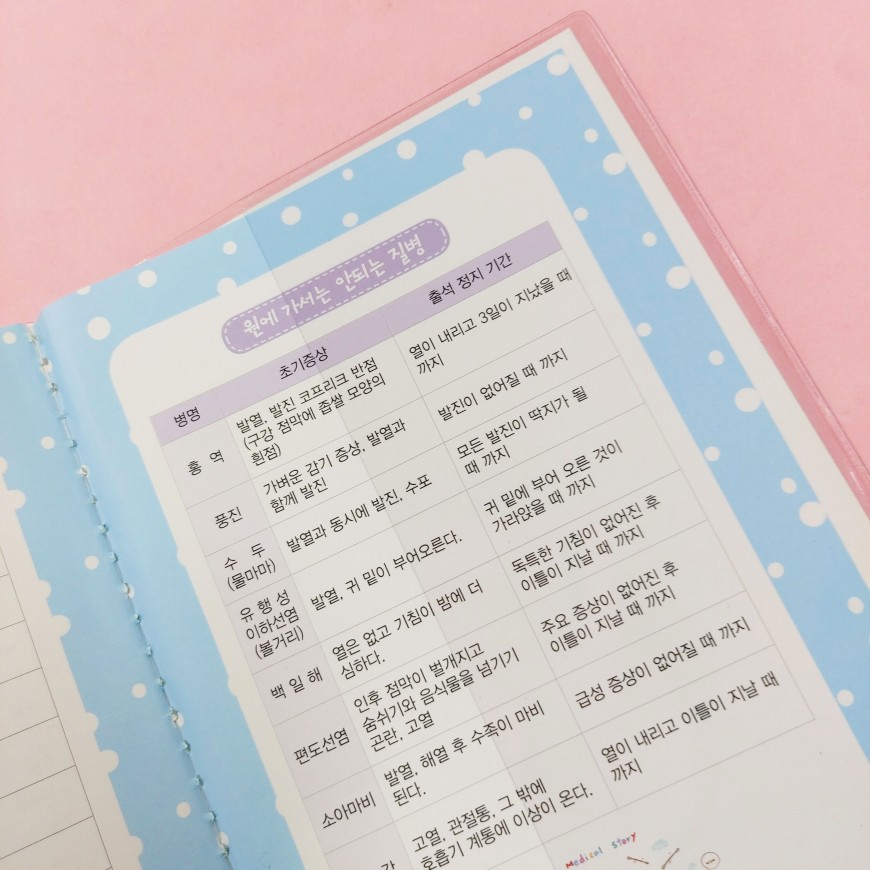 원에 가서는 안되는 질병
병명 초기증상 출석 정지 기간
홍 역
발열, 발진 코프리크 반점
(구강 점막에 좁쌀 모양의
흰점)
열이 내리고 3일이 지났을 때
까지
풍진
가벼운 감기 증상, 발열과
함께 발진
발진이 없어질 때 까지
수 두
(물마마)
발열과 동시에 발진, 수포
모든 발진이 딱지가 될
때 까지
유 행 성
이하선염
(볼거리)
발열, 귀 밑이 부어오른다.
귀 밑에 부어 오른 것이
가라앉을 때 까지
백 일 해
열은 없고 기침이 밤에 더
심하다.
독특한 기침이 없어진 후
이틀이 지날 때 까지
편도선염
인후 점막이 벌개지고
숨쉬기와 음식물을 넘기기
곤란, 고열
주요 증상이 없어진 후
이틀이 지날 때 까지
소아마비
발열, 해열 후 수족이 마비
된다.
급성 증상이 없어질 때 까지
고열, 관절통, 그 밖에
호흡기 계통에 이상이 온다.
열이 내리고 이틀이 지날 때
까지
Medical Story